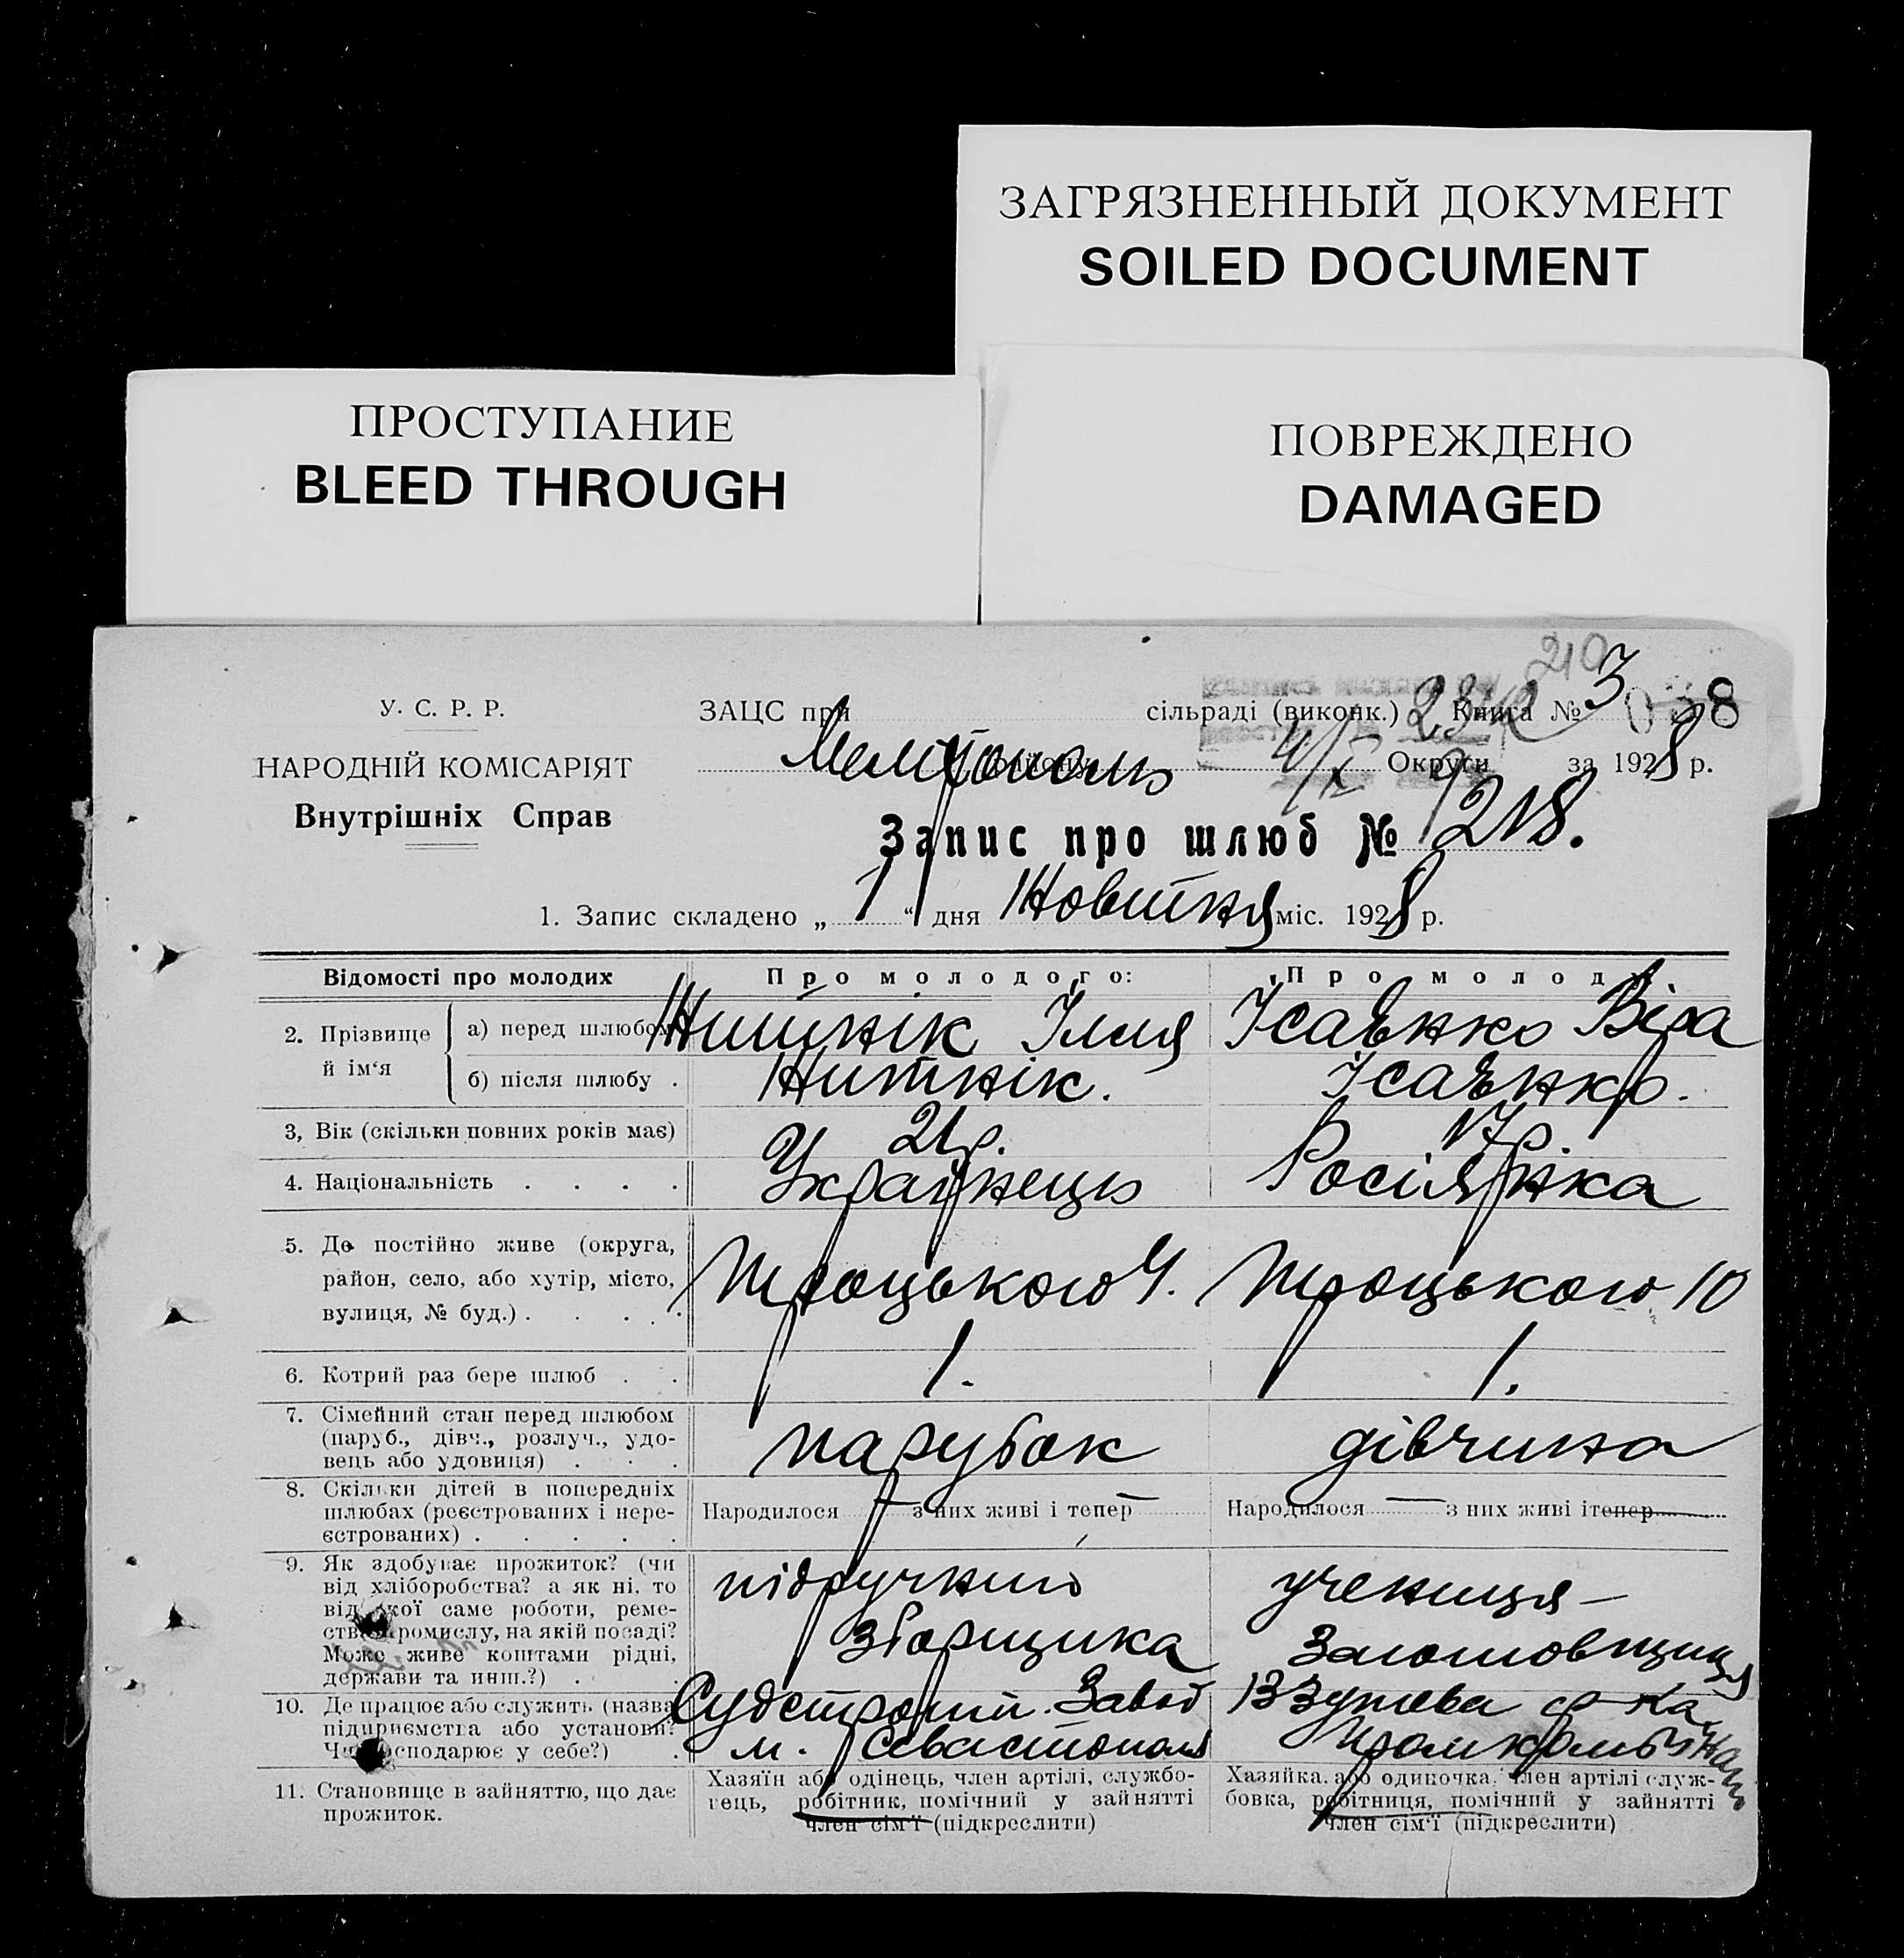 ЗАГРЯЗНЕННЫЙ ДОКУМЕНТ
SOILED DOCUMENT
ПРОСТУПАНИЕ
BLEED THROUGH
ПОВРЕЖДЕНО
DAMAGED
210
У. С. Р. Р.
НАРОДНІЙ КОМІСАРІЯТ
Внутрішніх Справ
ЗАЦС при сільраді (виконк.) Книга № 3 038
Мелітополь Округи за 1928 р.
Запис про шлюб № 1218.
1. Запис складено „ 1 “ дня Жовтня міс. 1928 р.
Відомості про молодих
Про молодого:
Про молоду
2. Прізвище й ім‘я
а) перед шлюбом
Житнік Ілля
Ісаєнко Віра
б) після шлюбу .
Житнік.
Ісаєнко.
3, Вік (скільки повних років має)
21р.
17р.
4. Національність . . . .
Українець
Росіянка
5. Де постійно живе (округа,
район, село, або хутір, місто,
вулиця, № буд.) . . . .
Троцького 4.
Троцького 10
6. Котрий раз бере шлюб . .
1.
1.
7. Сімейний стан перед шлюбом
(паруб., дівч., розлуч., удо-
вець або удовиця) . . .
парубок
дівчина
8. Скільки дітей в попередніх
шлюбах (реєстрованих і нере-
єстрованих) . . . . .
Народилося — з них живі і тепер —
Народилося — з них живі і тепер
9. Як здобуває прожиток? (чи
від хліборобства? а як ні, то
від якої саме роботи, реме-
ства, промислу, на якій посаді?
Може живе коштами рідні,
держави та инш.?) .
підручний
зборщика
учениця –
Заготовщиця
10. Де працює або служить (назва
підприємства або установи?
Чи господарює у себе?) .
Судстроит. Завод
м. Севастополь
Взутєва ф-ка
11. Становище в зайняттю, що дає
прожиток.
Хазяїн або одінець, член артілі, службо-
вець, робітник, помічний у зайнятті
член сім‘ї (підкреслити)
Хазяйка. або одиночка, член артілі служ-
бовка, робітниця, помічний у зайнятті
член сім‘ї (підкреслити)